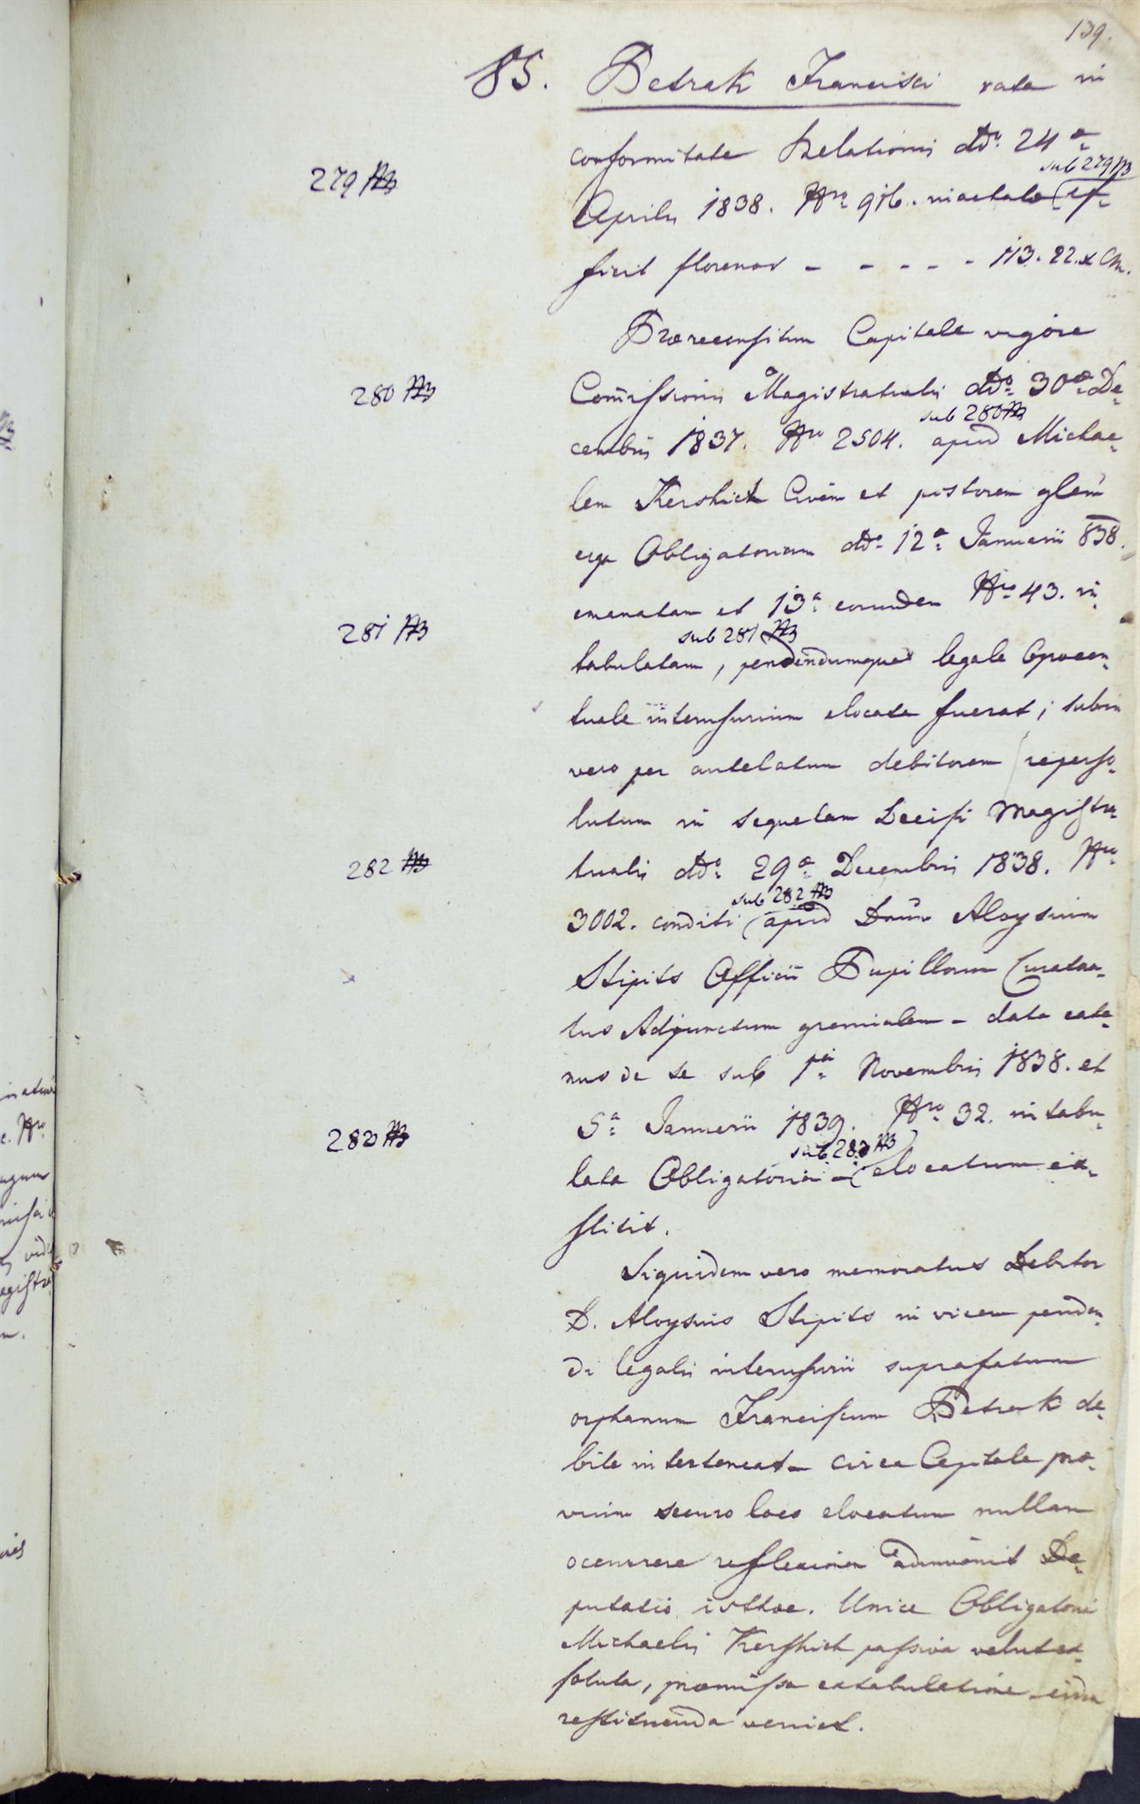 139.
85. Petrak Francisci rata in
conformitate Relationis ddo. 24a
279
sub 279
Aprilis 1838. Nro 916. mactata ef-
ficit florenos - - - - - 113. 22. x Cm.
Praerecensitum Capitale vigore
280
Comissionis Magistratualis ddo. 30a De-
sub 280
cembris 1837. Nro 2504. apud Michae-
lem Kershich Civem et pistorem glem
erga Obligatoriam ddo. 12a Januarii 838.
emanatam et 13a eorundem Nro 43. in-
281
sub 281
tabulatam, pendendumque legale 6procen-
tuale interusurium elocata fuerat; subin
vero per antelatum debitorem reperso-
lutum in sequelam Decisi Magistra-
282
tualis ddo. 29a Decembris 1838. Nro
sub 282
3002. conditi apud Dnum Aloysium
Stipits Officii Pupillorum Curatea-
tus Adjunctum gremialem - data eate-
nus de se sub 1a Novembris 1838. et
5a Januarii 1839. Nro 32. intabu-
283
sub 283
lata Obligatoria - elocatum ex-
stitit.
Siquidem vero memoratus Debitor
D. Aloysius Stipits in vicem penden-
di legalis interusurii suprafatum
orphanum Franciscum Petrak de-
bite interteneat - circa Capitale prae-
vium securo loco elocatum nullam
occurrere reflexionem adinvenit De-
putatio isthaec. Unice Obligatoria
Michaelis Kershich passiva velut ex-
soluta, praemissa extabulatione eidem
restituenda veniet.